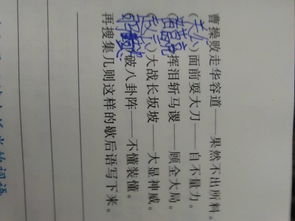 曹操败走华容道——果然不出所料。
(关公)面前耍大刀——自不量力。
(诸葛亮)挥泪斩马谡——顾全大局。
(赵云)大战长坂坡——大显神威。
破八卦阵——不懂装懂。
再搜集几则这样的歇后语写下来。
的词语